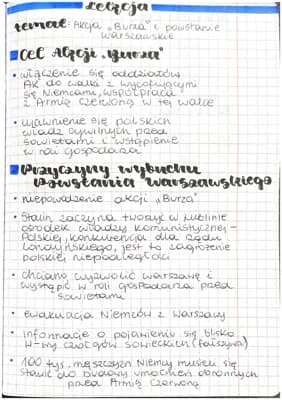 Lekcja
temat: Akcja „Burza" i powstanie
warszawskie
CEL Akcji „Burza"
• włączenie się oddziałów
AK do walki z wycofującymi
się Niemcami, współpraca
z Armią Czerwoną w tej walce
• ujawnienie się polskich
władz cywilnych przed
sowietami i wstąpienie
w roli gospodarza
Przyczyny wybuchu
Powstania Warszawskiego
• niepowodzenie akcji „Burza"
• Stalin zaczyna tworzyć w lublinie
ośrodek władzy komunistycznej -
Polskiej, konkurencja dla rządu
londyńskiego, jest to zagrożenie
polskiej niepodległości
• chciano wyzwolić warszawę i
wystąpić w roli gospodarza przed
sowietami
• ewakuacja Niemców z Warszawy
• informacje o pojawieniu się blisko
W-wy czołgów sowieckich (fałszywa)
• 100 tyś. mężczyzn Niemcy musieli się
stawić do budowy umocnień obronnych
przed Armią Czerwoną